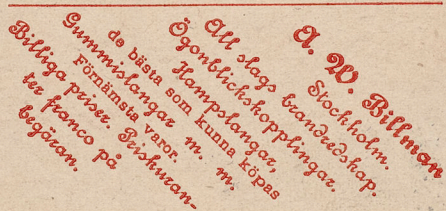 A. W. Billman
Stockholm.
All slags brandredskap.
Ögonblickskopplingar.
Hampslangar,
de bästa som kunna köpas
Gummislangar m. m.
Förnämsta varor.
Billiga priser. Priskuran-
ter franco på
begäran.